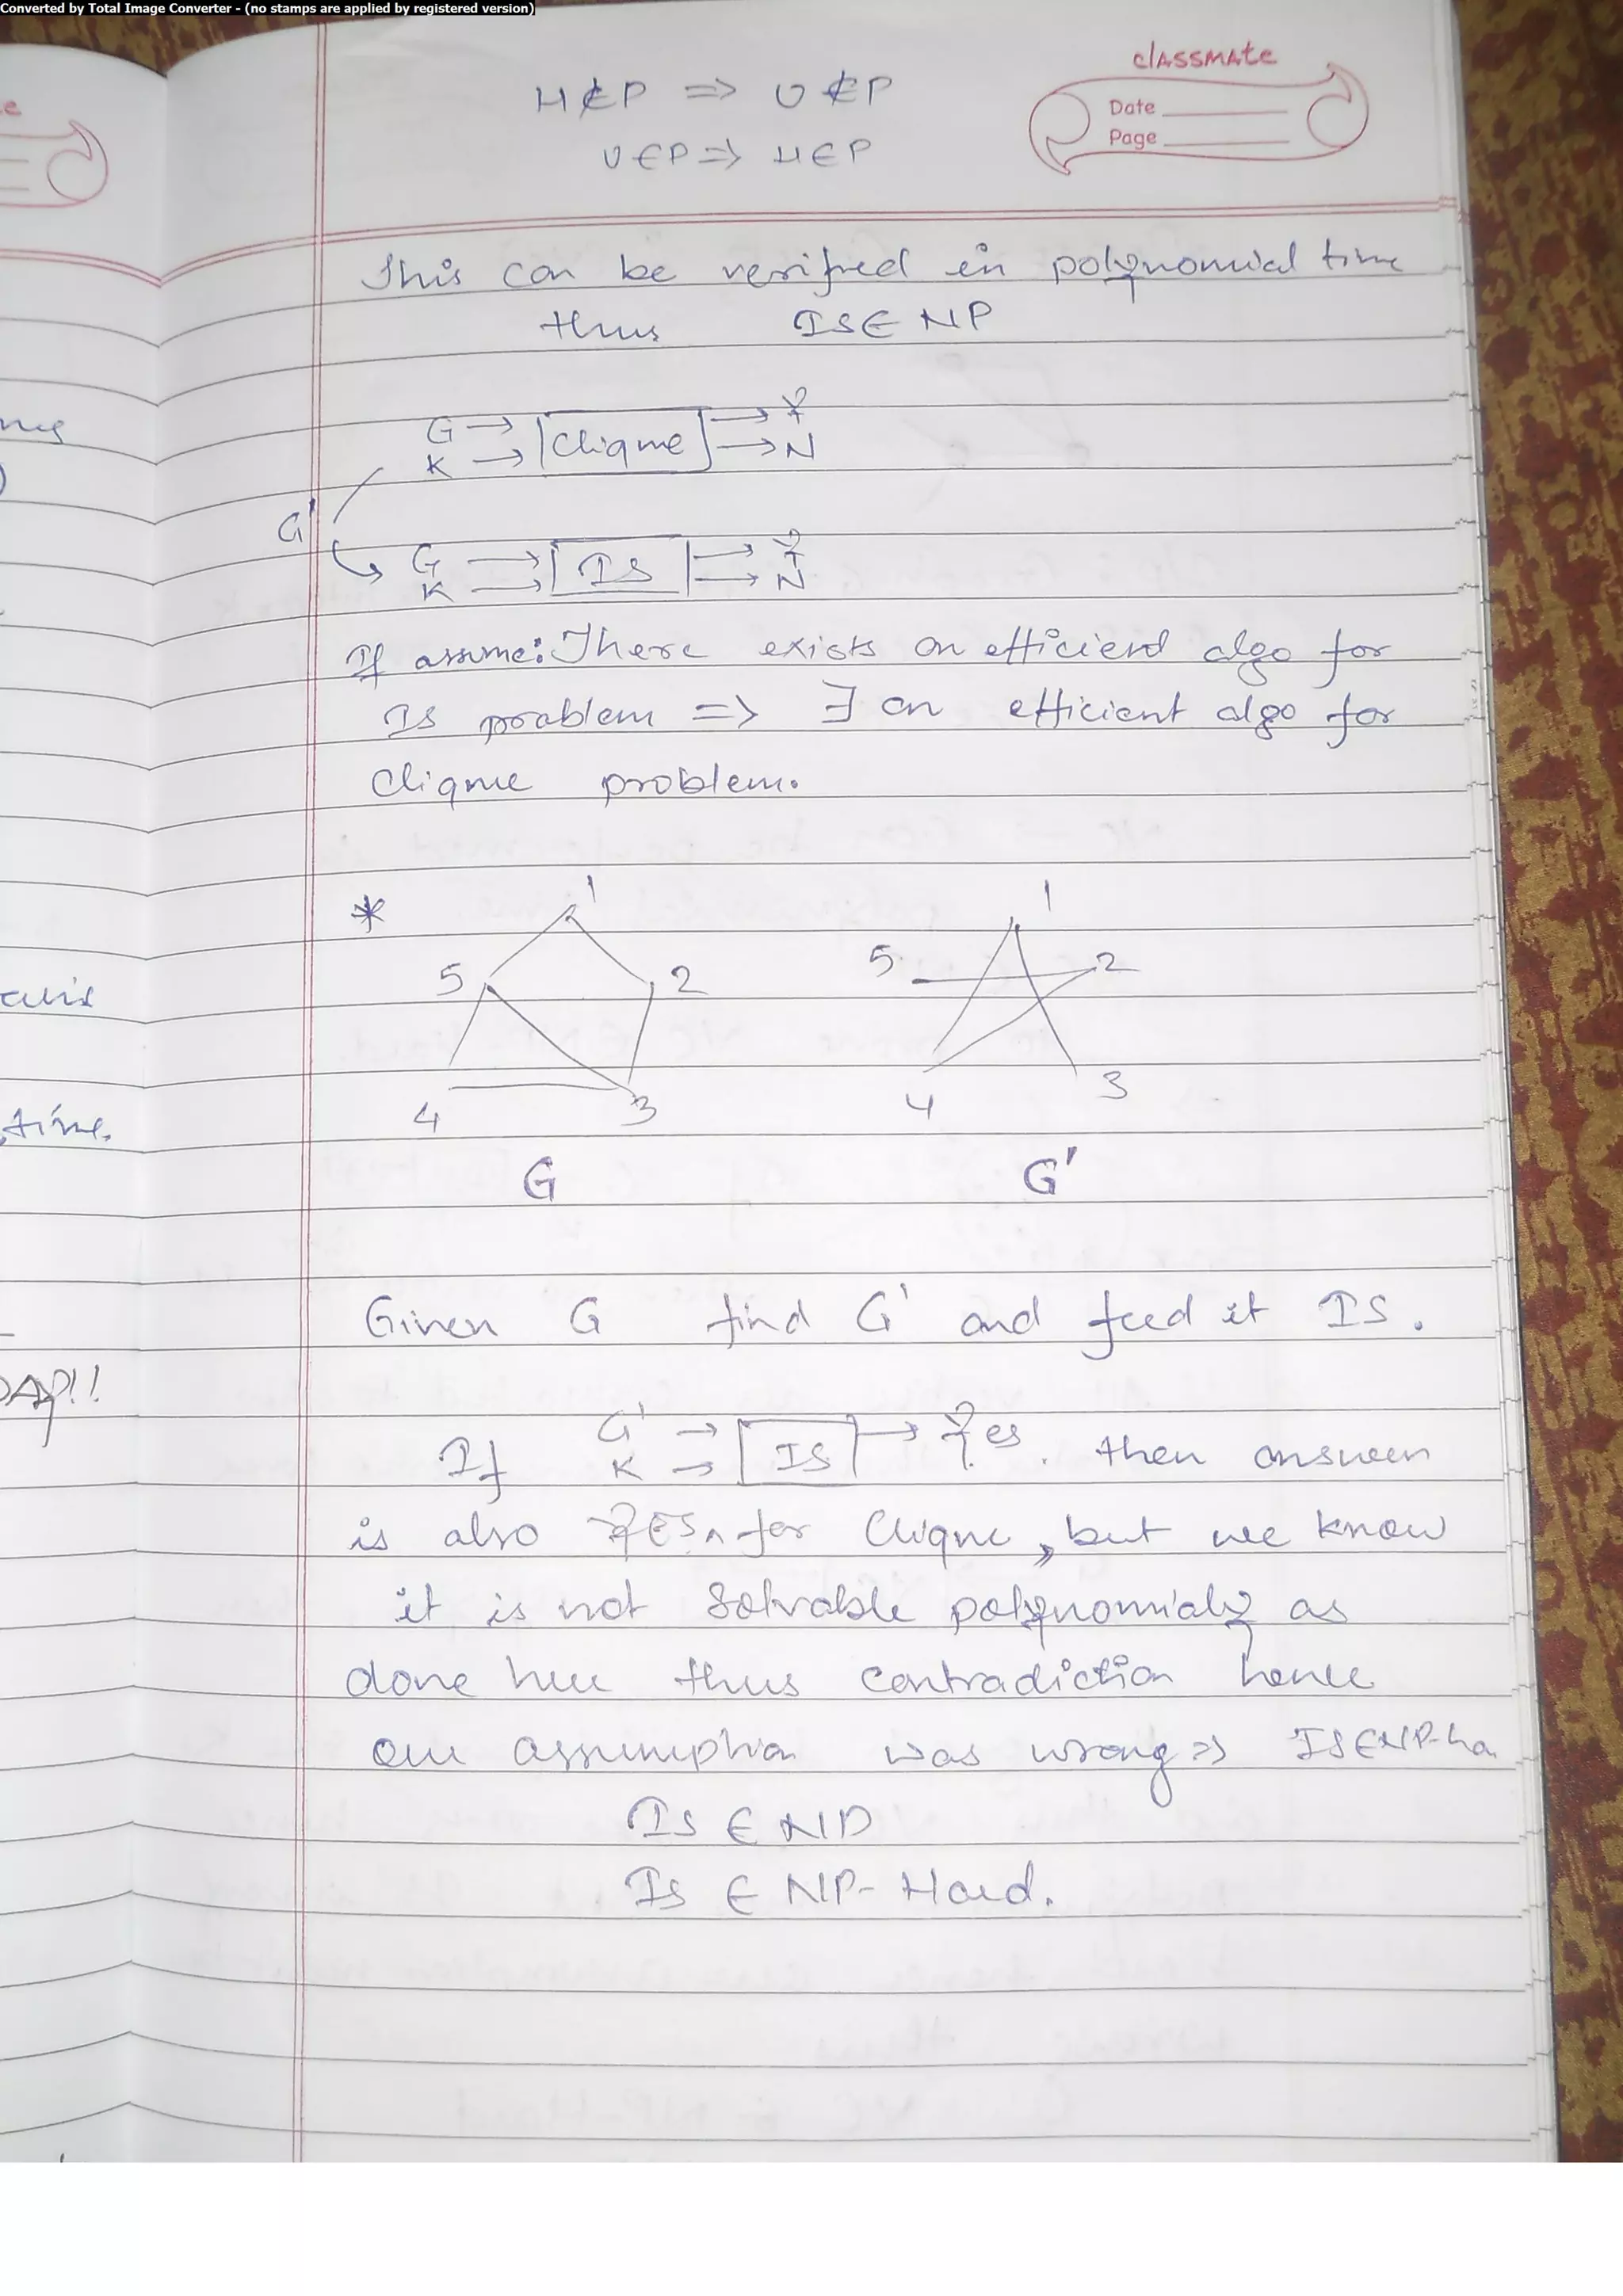 Converted by Total Image Converter - (no stamps are applied by registered version)
classmate
Date
Page
H∉P => U∉P
U∈P => H∈P
This can be verified in polynomial time
thus IS∈ NP
G → Clique → Y
K → → N
G'
G → IS → Y
K → → N
If assume: There exists an efficient algo for
IS problem => ∃ an efficient algo for
Clique problem.
*
1
5 2
4 3
G
1
5 2
4 3
G'
Given G find G' and feed it IS.
If G' → IS → Yes. then answer
K →
is also YES for Clique, but we know
it is not Solvable polynomialy as
done here thus contradiction hence
our assumption was wrong => IS∈NP-ha
IS ∈ NP
IS ∈ NP-Hard.
time.